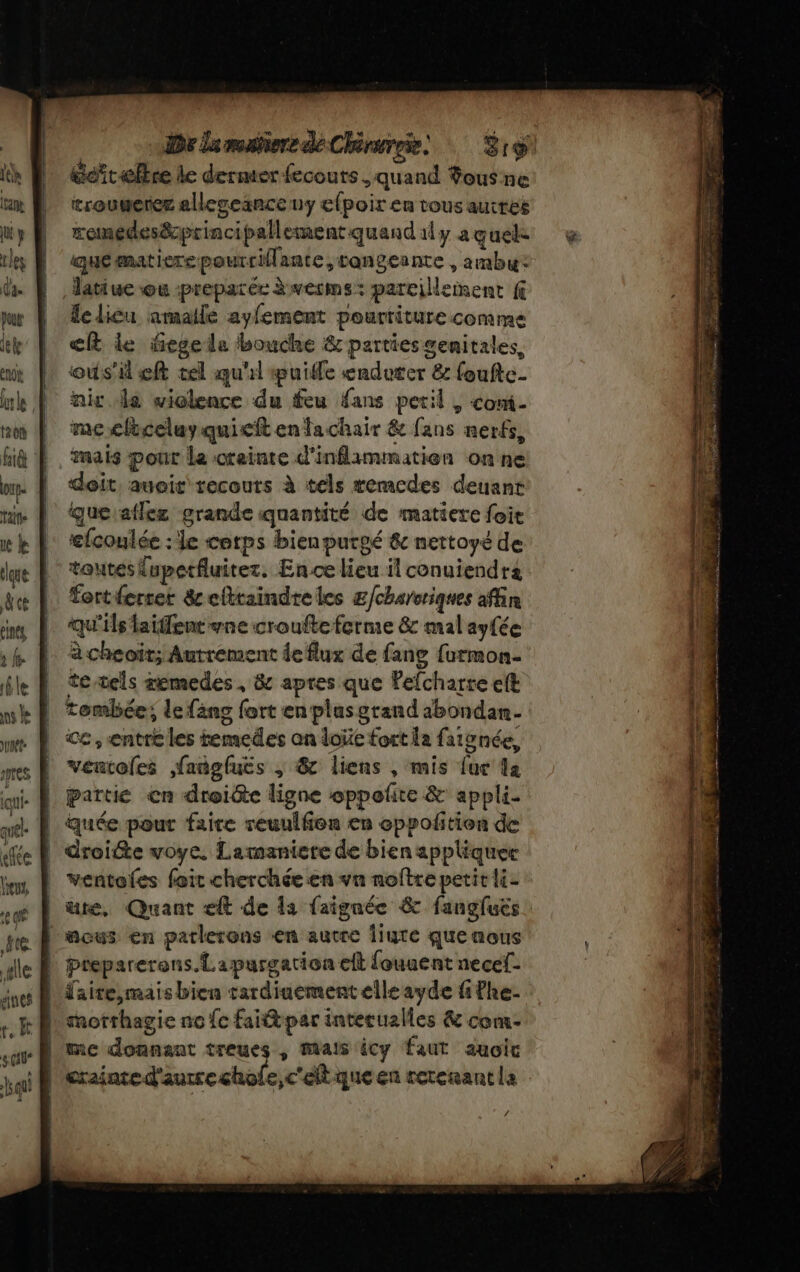 De la matiere de Chirurgie. 819
doit eſtre le dernier ſecours, quand vous ne
trouuerez allegeance ny eſpoir en tous autres
remedes & principallement quand il y a quel-
que matiere pourriſſante, rongeante, ambu-
latiue ou preparée à verms: pareillement ſi
le lieu amaſſe ayſement pourriture comme
eſt le ſiege la bouche & parties genitales,
ou s'il eſt tel qu'il puiſſe endurer & ſouſte-
nir la violence du feu ſans peril, com-
me eſt celuy qui eſt en la chair & ſans nerfs,
mais pour la crainte d'inflammation on ne
doit auoir recours à tels remedes deuant
que aſſez grande quantité de matiere ſoit
eſcoulée: le corps bien purgé & nettoyé de
toutes ſuperfluitez. En ce lieu il conuiendra
fort ſerrer & eſtraindre les æſcharotiques affin
qu'ils laiſſent vne crouſte ferme & mal ayſée
à cheoir; Autrement le flux de ſang ſurmon-
te tels remedes, & apres que l'eſcharre eſt
tombée; le ſang ſort en plus grand abondan-
ce, entre les remedes on loüe fort la ſaignée,
ventoſes, ſangſuës, & liens, mis ſur la
partie en droicte ligne oppoſite & appli-
quée pour faire reuulſion en oppoſition de
droicte voye. La maniere de bien appliquer
ventoſes ſoit cherchée en vn noſtre petit li-
ure. Quant eſt de la ſaignée & ſangſuës
nous en parlerons en autre liure que nous
preparerons. La purgation eſt ſouuent neceſ-
ſaire, mais bien tardiuement elle ayde ſi l'he-
morrhagie ne ſe faict par interualles & com-
me donnant treues, mais icy faut auoir
crainte d'autre choſe, c'eſt que en retenant la